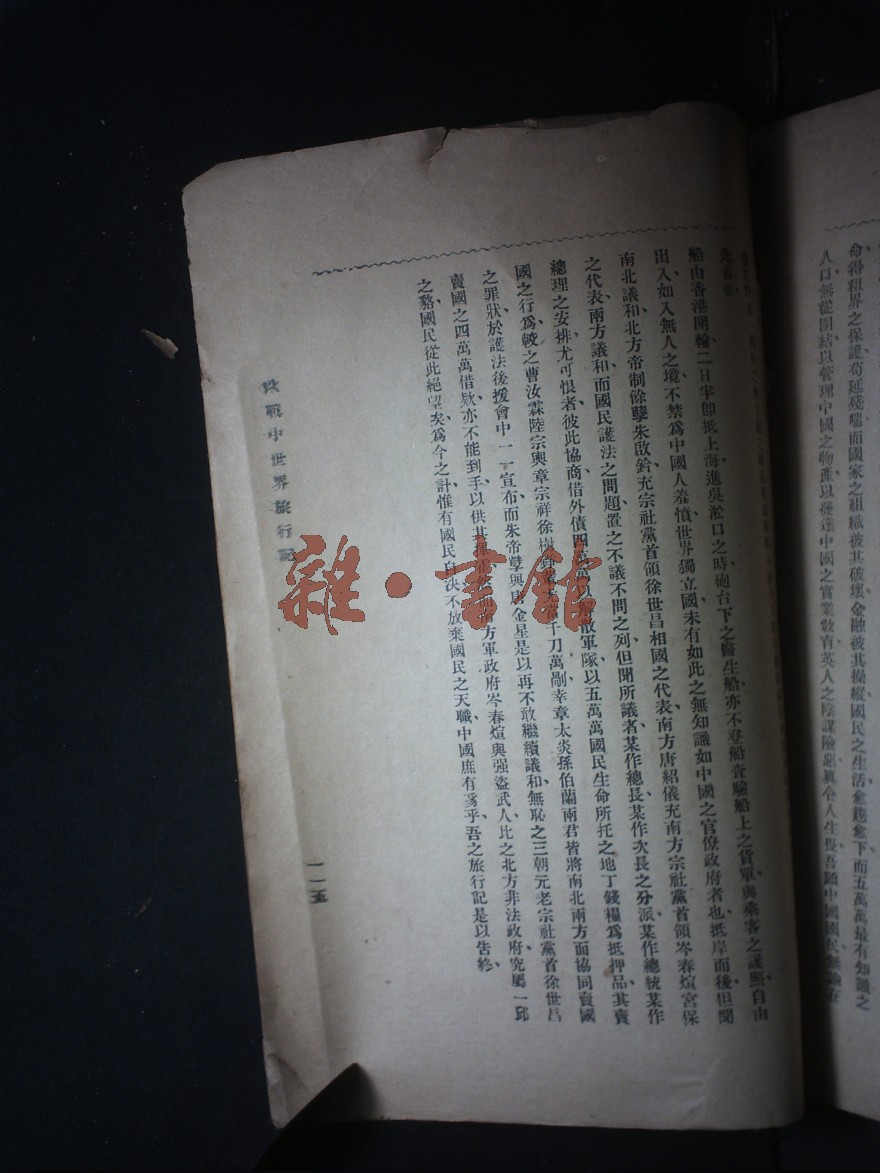 命得租界之保護苟延殘喘而國家之組織被其破壞金融被其操縱國民之生活愈趨愈下而五萬萬最有知識之
人口無從團結以管理中國之物產以發達中國之實業教育英人之陰謀險
船由香港開輪二日半卽抵上海進吳淞口之時砲台下之醫生船亦不登船查驗船上之貨單與乘客之護照自由
出入如入無人之境不禁爲中國人羞憤世界獨立國未有如此之無知識如中國之官僚政府者也抵岸而後但聞
南北議和北方帝制餘孽朱啟鈐充宗社黨首領徐世昌相國之代表南方唐紹儀充南方宗社黨首領岑春煊宮保
之代表兩方議和而國民護法之問題置之不議不問之列但聞所議者某作總長某作次長之分派某作總統某作
總理之安排尤可恨者彼此協商借外債四萬萬以解散軍隊以五萬萬國民生命所托之地丁錢糧爲抵押品其賣
國之行爲較之曹汝霖陸宗輿章宗祥徐樹錚千刀萬剮幸章太炎孫伯蘭兩君皆將南北兩方面協同賣國
之罪狀於護法後援會中一一宣布而朱帝孽與唐金星是以再不敢繼續議和無恥之三朝元老宗社黨首徐世昌
賣國之四萬萬借欵亦不能到手以供其揮方軍政府岑春煊與强盜武人比之北方非法政府究屬一邱
之貉國民從此絕望矣爲今之計惟有國民自決不放棄國民之天職中國庶有豸乎吾之旅行記是以吿終
戰中世界旅行記
一一五
雜·書館